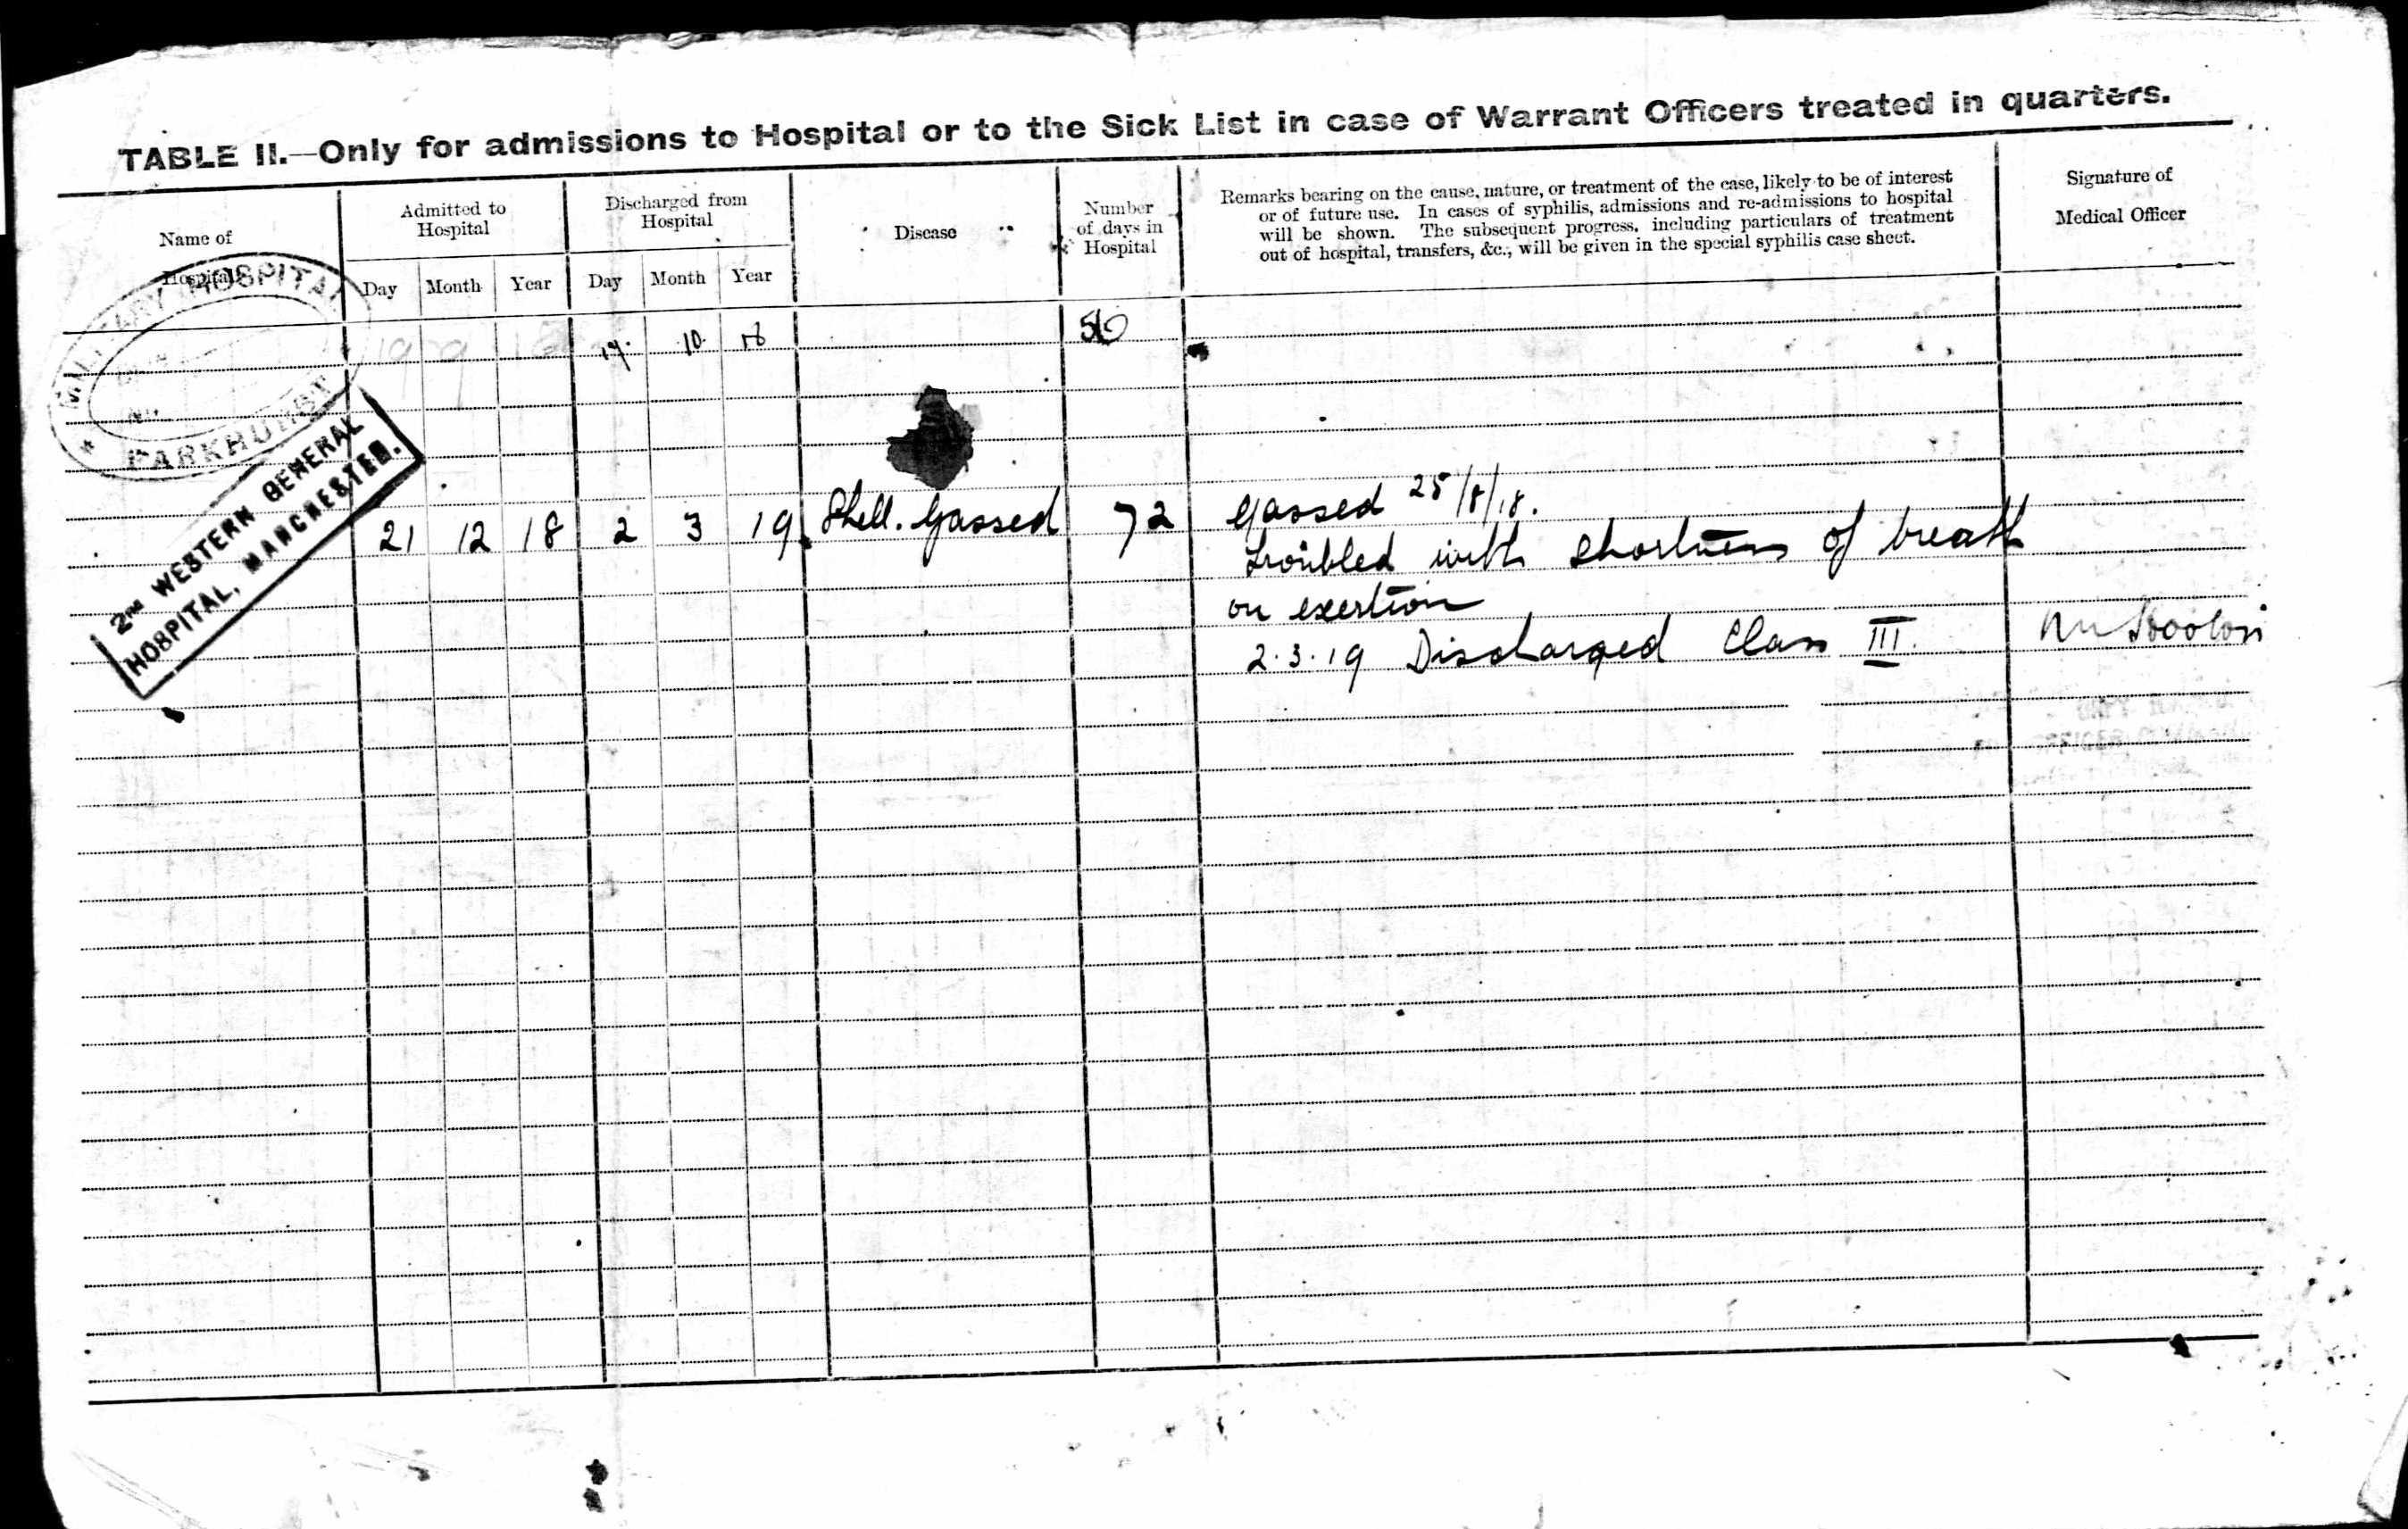 TABLE II.—Only for admissions to Hospital or to the Sick List in case of Warrant Officers treated in quarters.
Name of
Hospital
Admitted to
Hospital
Day Month Year
Discharged from
Hospital
Day Month Year
Disease
Number
of days in
Hospital
Remarks bearing on the cause, nature, or treatment of the case, likely to be of interest
or of future use. In cases of syphilis, admissions and re-admissions to hospital
will be shown. The subsequent progress, including particulars of treatment
out of hospital, transfers, &c., will be given in the special syphilis case sheet.
Signature of
Medical Officer
MILITARY HOSPITAL
PARKHURST
10 18
2ND WESTERN GENERAL
HOSPITAL, MANCHESTER.
21 12 18 2 3 19 Shell. Gassed 72 Gassed 25/8/18.
troubled with shortness of breath
on exertion
2.3.19 Discharged Class III.